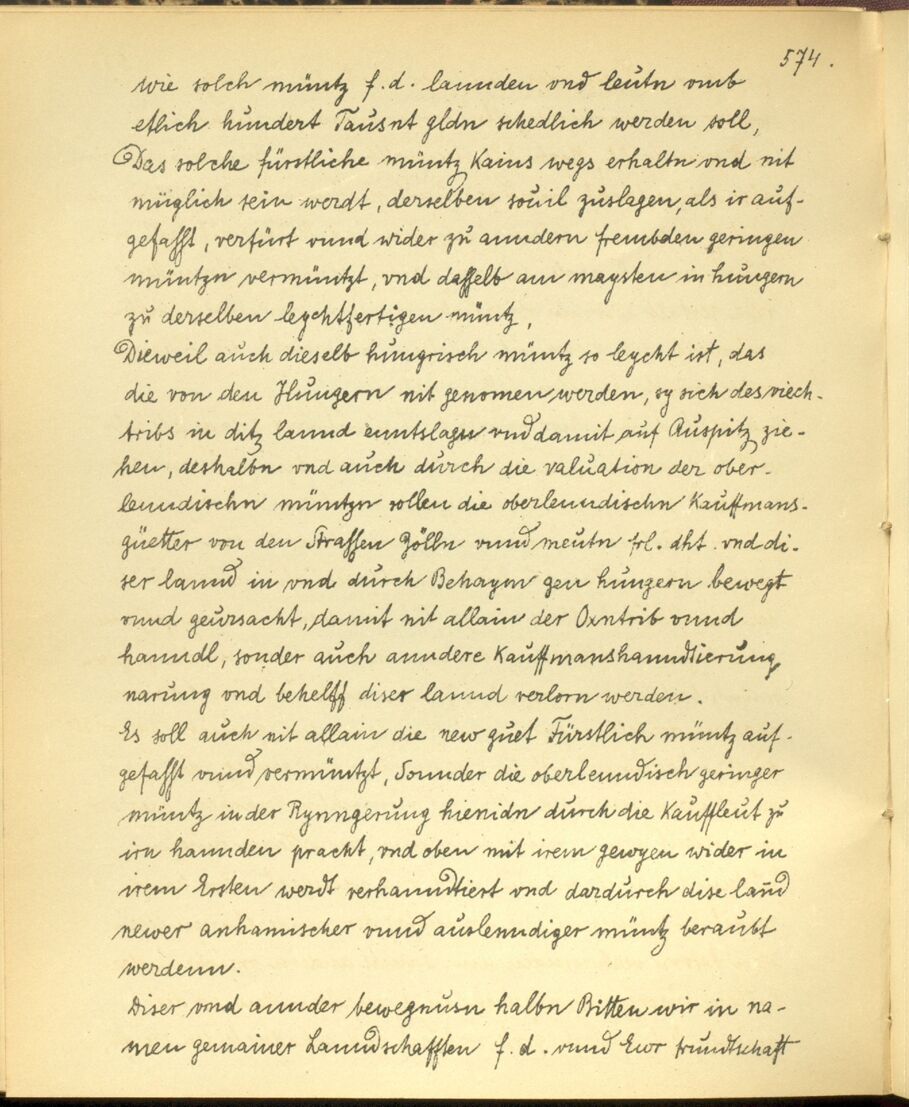 574.
wie solch müntz f. d. lannden vnd leutn vmb
etlich hundert Tausnt gldn schedlich werden soll,
Das solche fürstliche müntz kains wegs erhaltn vnd nit
müglich sein werdt, derselben souil zuslagen, als ir auf-
gefasst, verfürt vnnd wider zu anndern frembden geringen
müntzn vermüntzt, vnd dasselb am maysten in hungern
zu derselben leychtfertigen müntz,
Dieweil auch dieselb hungrisch müntz so leycht ist, das
die von den Hungern nit genomen werden, sy sich des viech-
tribs in ditz lannd enntslagn vnd damit auf Auspitz zie-
hen, deshalbn vnd auch durch die valuation der ober-
lenndischn müntzn sollen die oberlenndischn Kauffmans-
güetter von den Strassen Zölln vnnd meutn frl. dht. vnd di-
ser lannd in vnd durch Behaym gen hungern bewegt
vnnd geursacht, damit nit allain der Oxntrib vnnd
hanndl, sonder auch anndere Kauffmanshanndtierung,
narung vnd behelff diser lannd verlorn werden.
Es soll auch nit allain die new guet Fürstlich müntz auf-
gefasst vnnd vermüntzt, Sonnder die oberlenndisch geringer
müntz in der Rynngerung hienidn durch die Kauffleut zu
irn hannden pracht, vnd oben mit irem gewyen wider in
irem Ersten werdt verhanndtiert vnd dardurch dise lannd
newer anhamischer vnnd auslenndiger müntz beraubt
werdenn.
Diser vnnd annder bewegnusn halbn Bitten wir in na-
men gemainer Lanndschafften f. d. vnnd Ewr frundtschaft